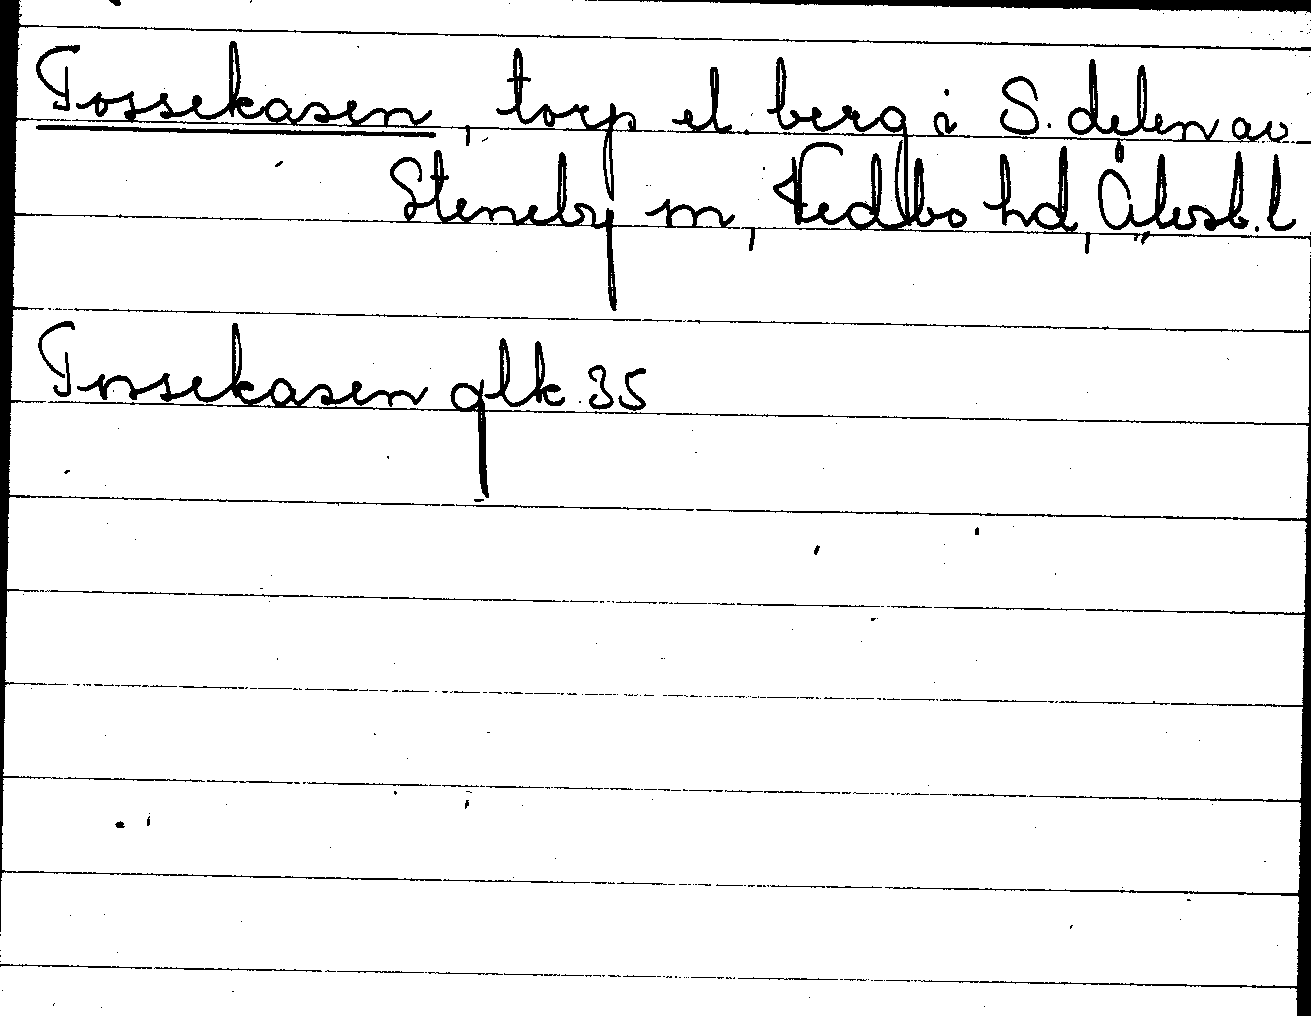 Tossekasen, torp el. berg i S. delen av
Steneby sn, Vedbo hd, Älvsb. l
Tossekasen glk 35